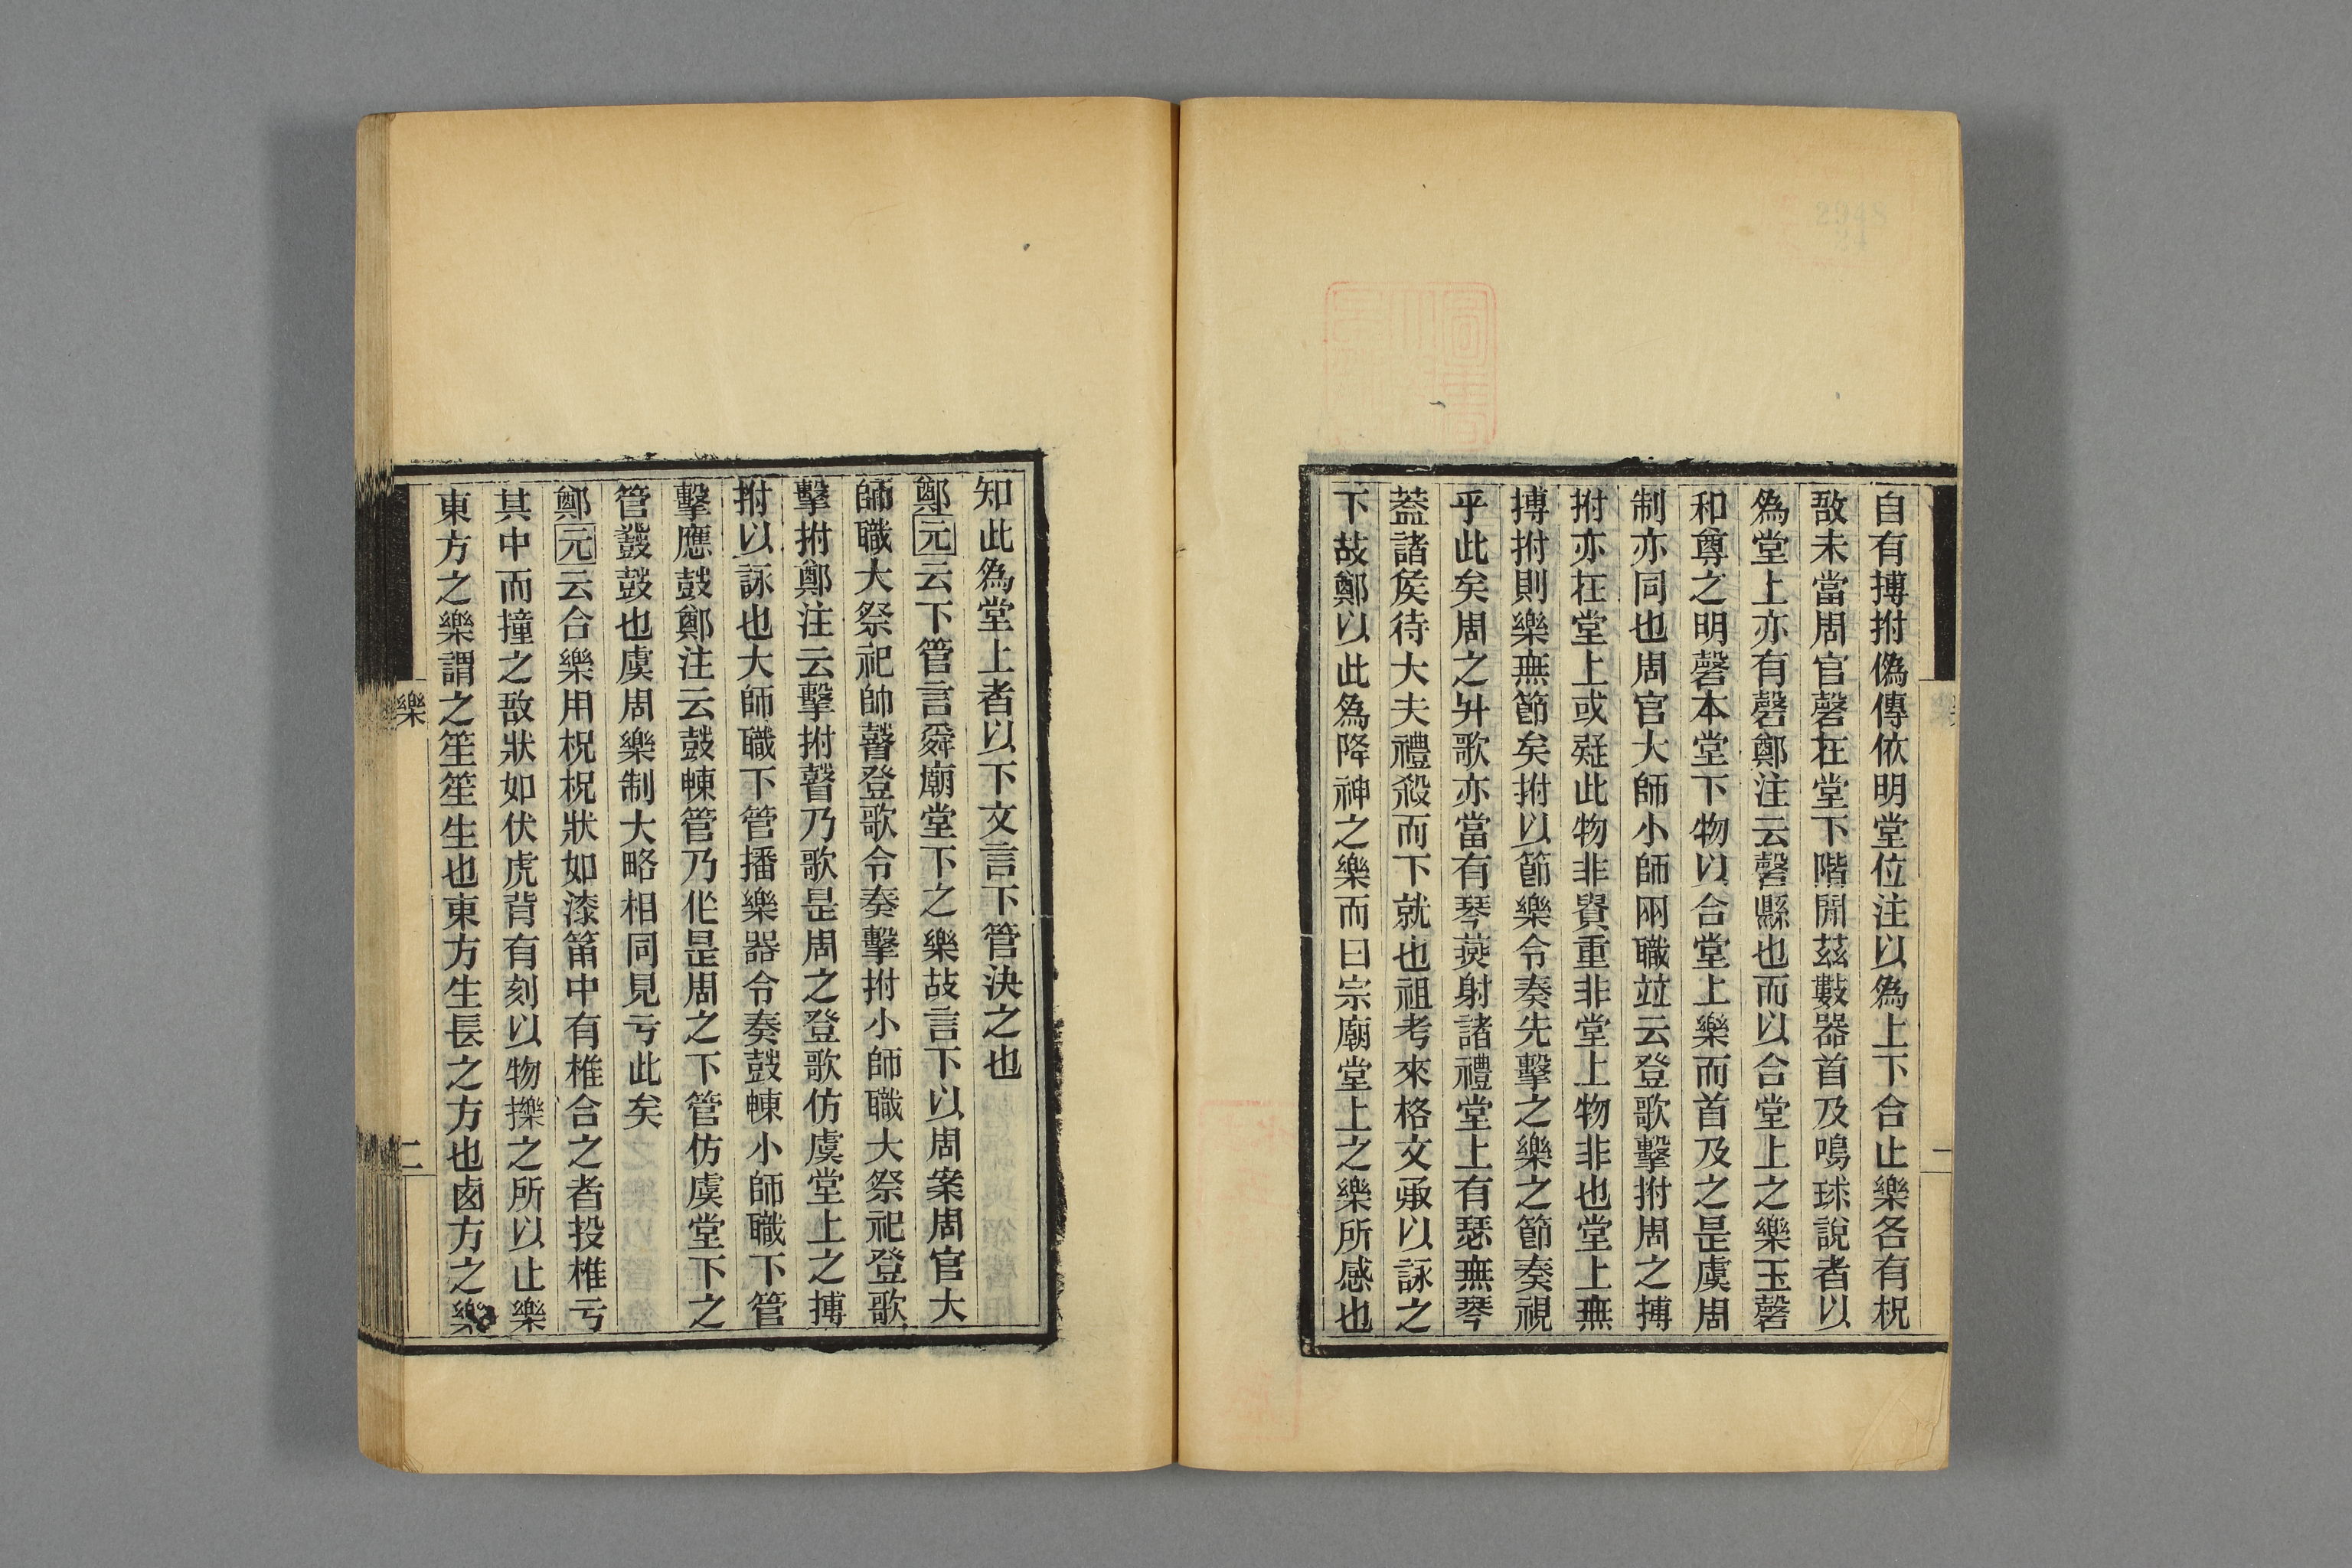 自有搏拊僞傳依明堂位注以爲上下合止樂各有柷
敔未當周官磬在堂下階閒茲數器首及鳴球說者以
爲堂上亦有磬鄭注云磬縣也而以合堂上之樂玉磬
和尊之明磬本堂下物以合堂上樂而首及之是虞周
制亦同也周官大師小師兩職竝云登歌擊拊周之搏
拊亦在堂上或疑此物非貴重非堂上物非也堂上無
搏拊則樂無節矣拊以節樂令奏先擊之樂之節奏視
乎此矣周之升歌亦當有琴燕射諸禮堂上有瑟無琴
蓋諸矦待大夫禮殺而下就也祖考來格文承以詠之
下故鄭以此爲降神之樂而曰宗廟堂上之樂所感也
知此爲堂上者以下文言下管決之也
鄭元云下管言舜廟堂下之樂故言下以周案周官大
師職大祭祀帥瞽登歌令奏擊拊小師職大祭祀登歌
擊拊鄭注云擊拊瞽乃歌是周之登歌仿虞堂上之搏
拊以詠也大師職下管播樂器令奏鼓朄小師職下管
擊應鼓鄭注云鼓朄管乃作是周之下管仿虞堂下之
管鼗鼓也虞周樂制大略相同見亏此矣
鄭元云合樂用柷柷狀如漆筩中有椎合之者投椎亏
其中而撞之敔狀如伏虎背有刻以物擽之所以止樂
東方之樂謂之笙笙生也東方生長之方也卤方之樂
樂
二